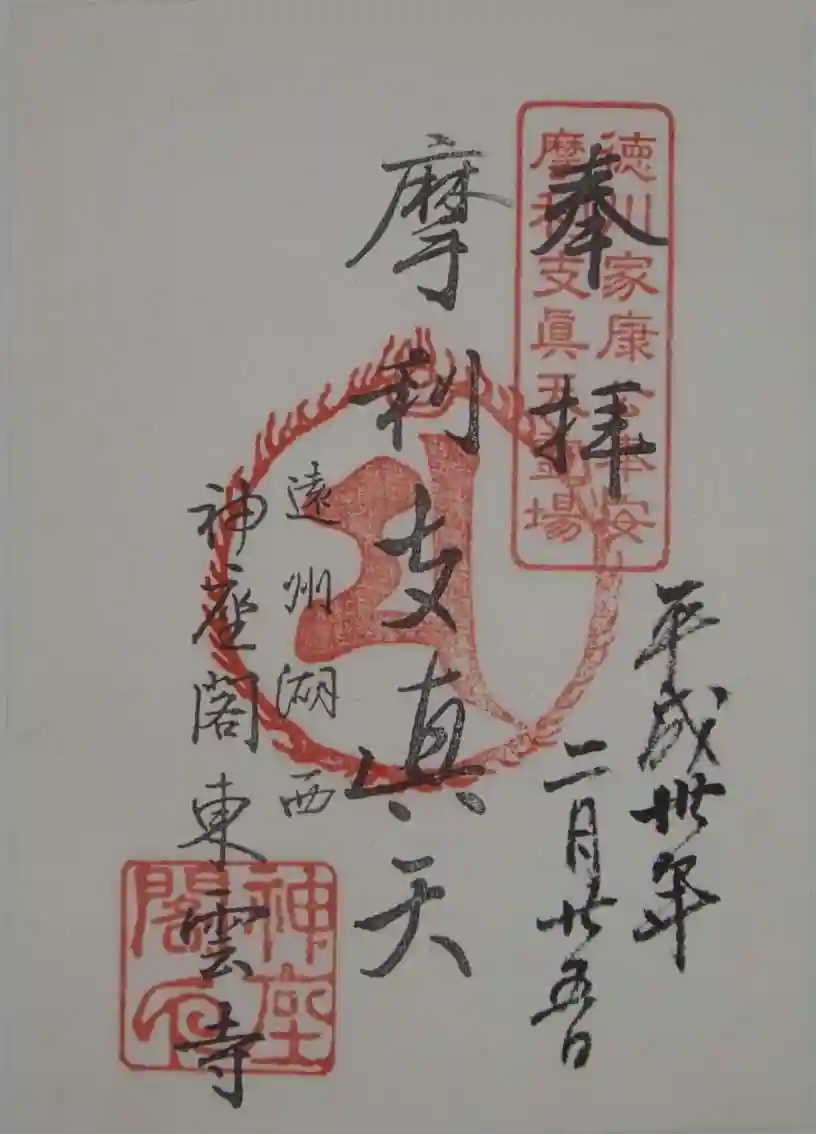 奉拝
徳川家康公奉安
摩利支眞天霊場
平成卅年
二月廿五日
摩利支眞天
遠州湖西
神座閣東雲寺
神座
閣印